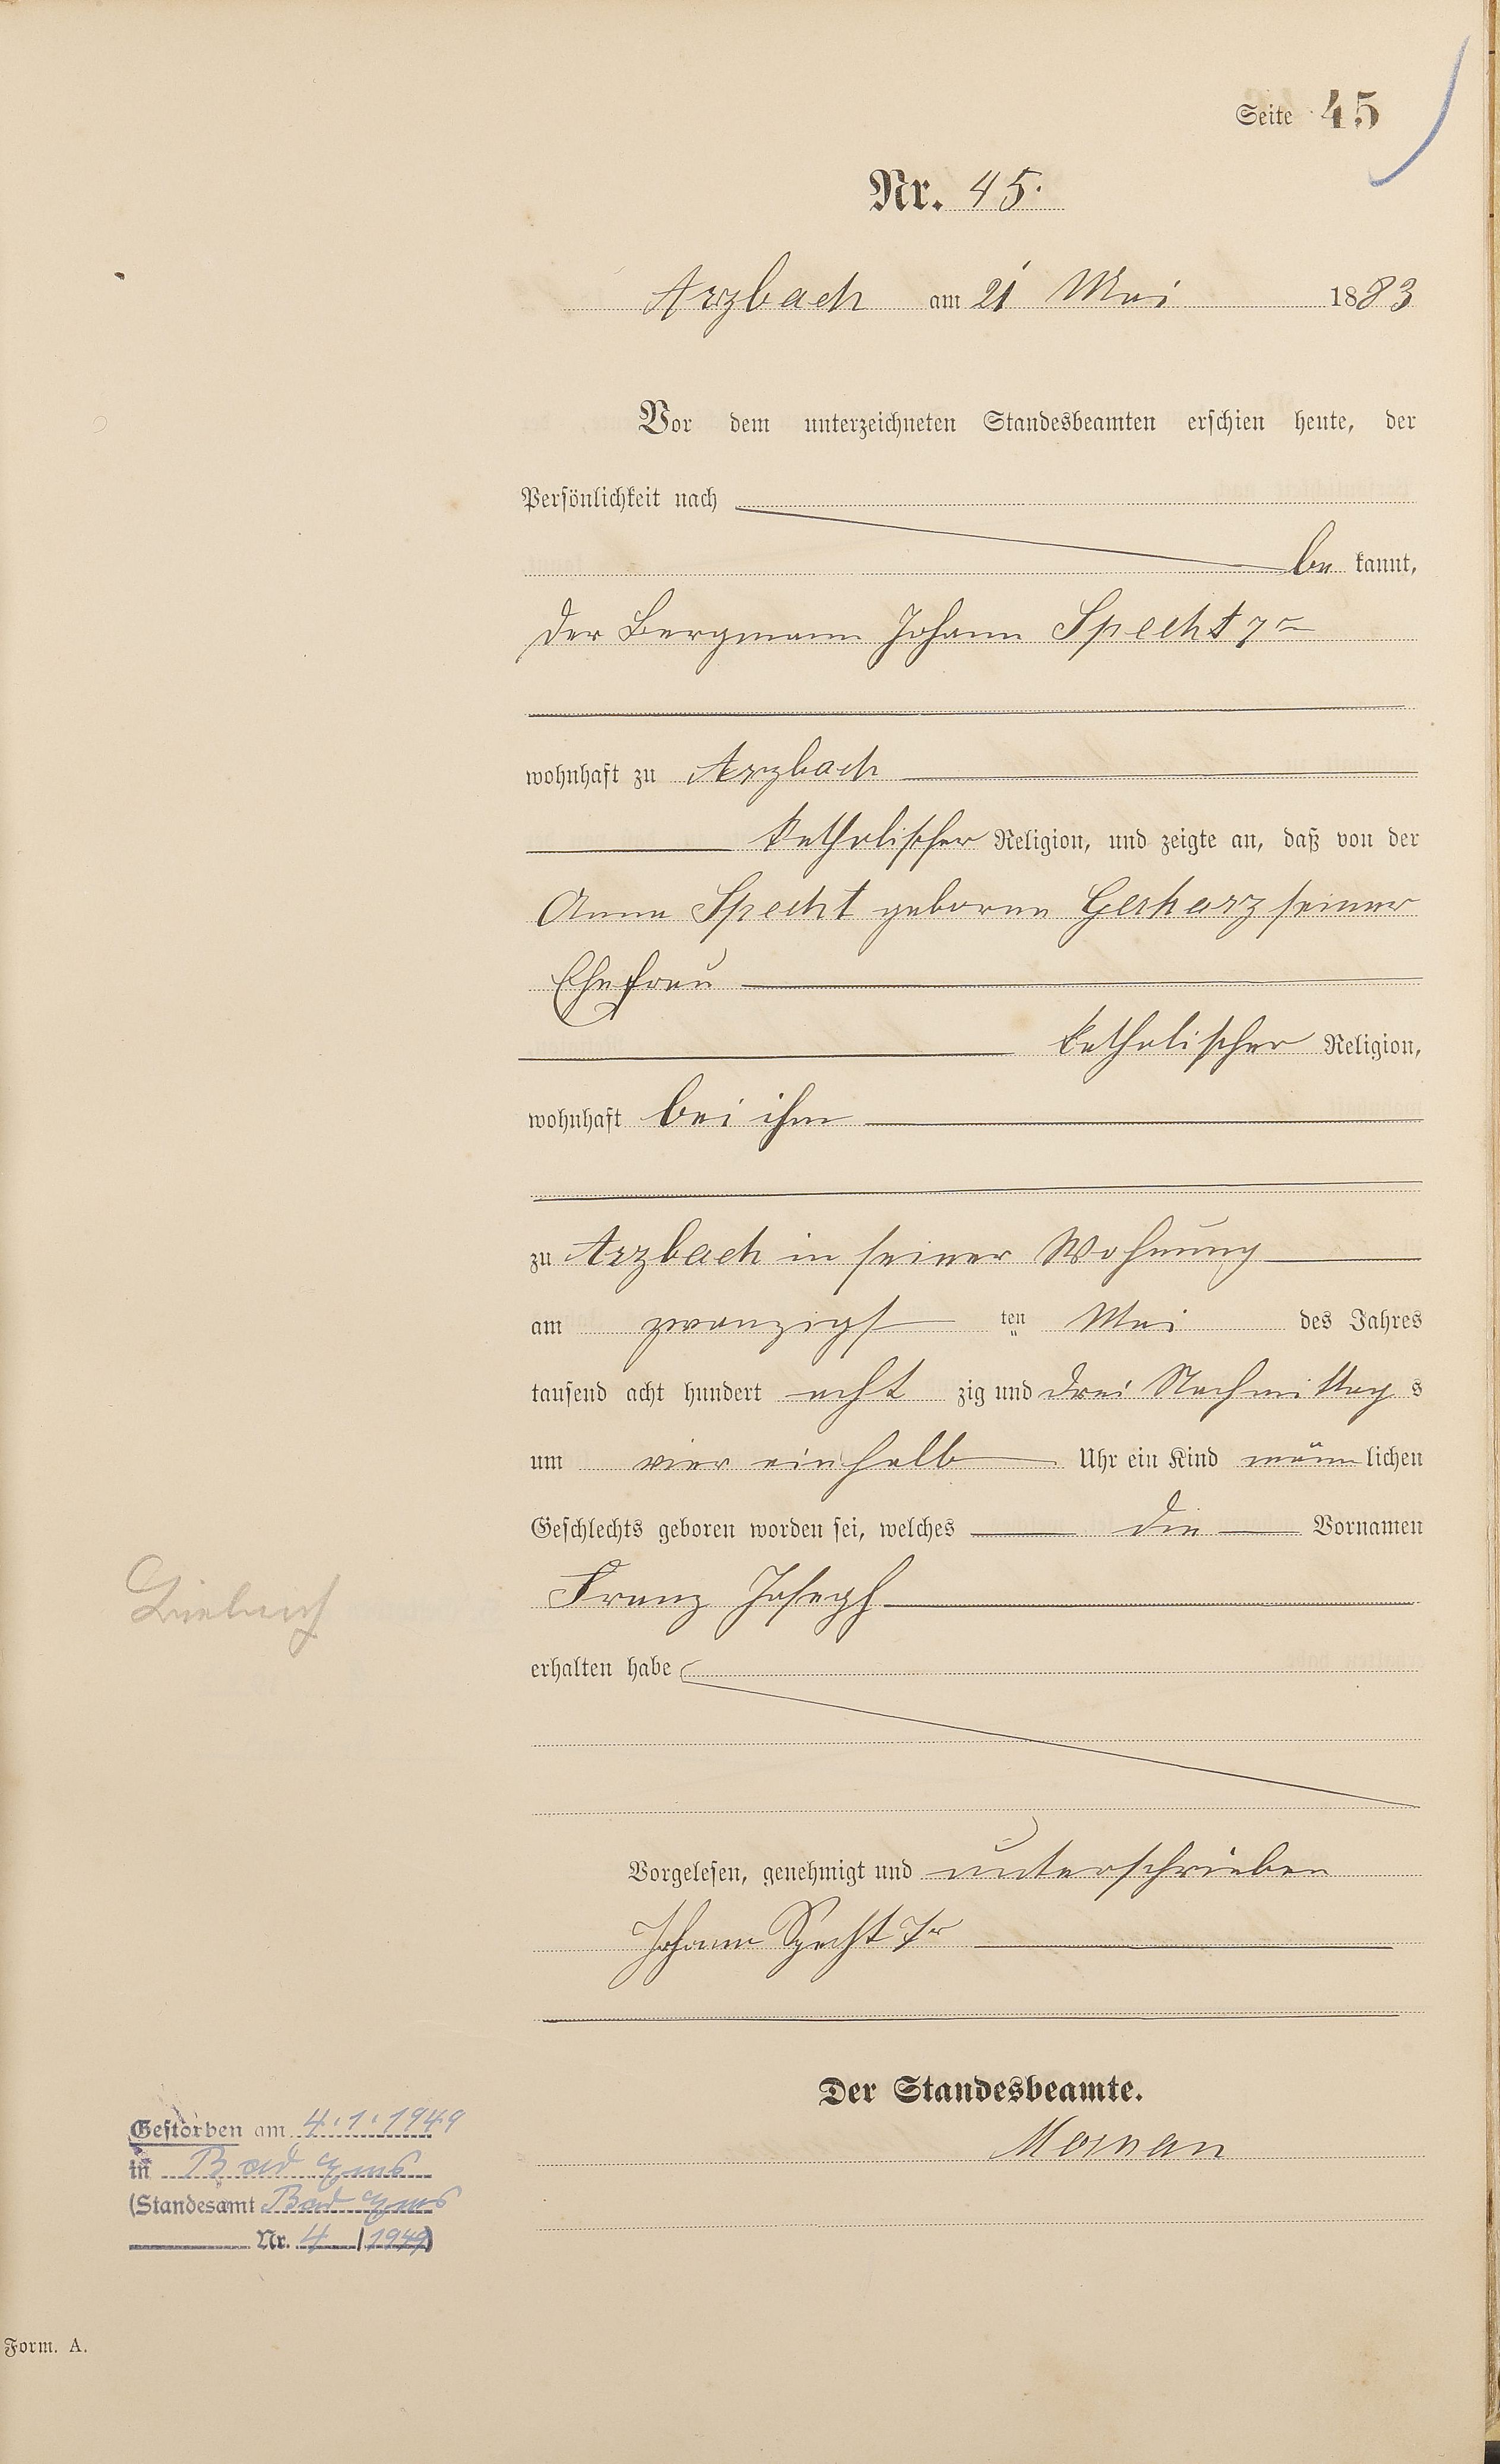 Seite 45
Nr. 45.
Arzbach am 21 Mai 1883
Vor dem unterzeichneten Standesbeamten erschien heute, der
Persönlichkeit nach
be kannt,
der Bergmann Johann Specht 7r
wohnhaft zu Arzbach
katholischer Religion, und zeigte an, daß von der
Anna Specht geborne Gerharz seiner
Ehefrau
katholischer Religion,
wohnhaft bei ihm
zu Arzbach in seiner Wohnung
am zwanzigst ten Mai des Jahres
tausend acht hundert acht zig und drei Nachmittag s
um vier einhalb Uhr ein Kind männlichen
Geschlechts geboren worden sei, welches die Vornamen
Franz Joseph
erhalten habe
Vorgelesen, genehmigt und unterschrieben
Johann Specht 7r
Der Standesbeamte.
Gestorben am 4.1.1949
in Bad Ems
(Standesamt Bad Ems
Nr. 4 / 1949)
Form. A.